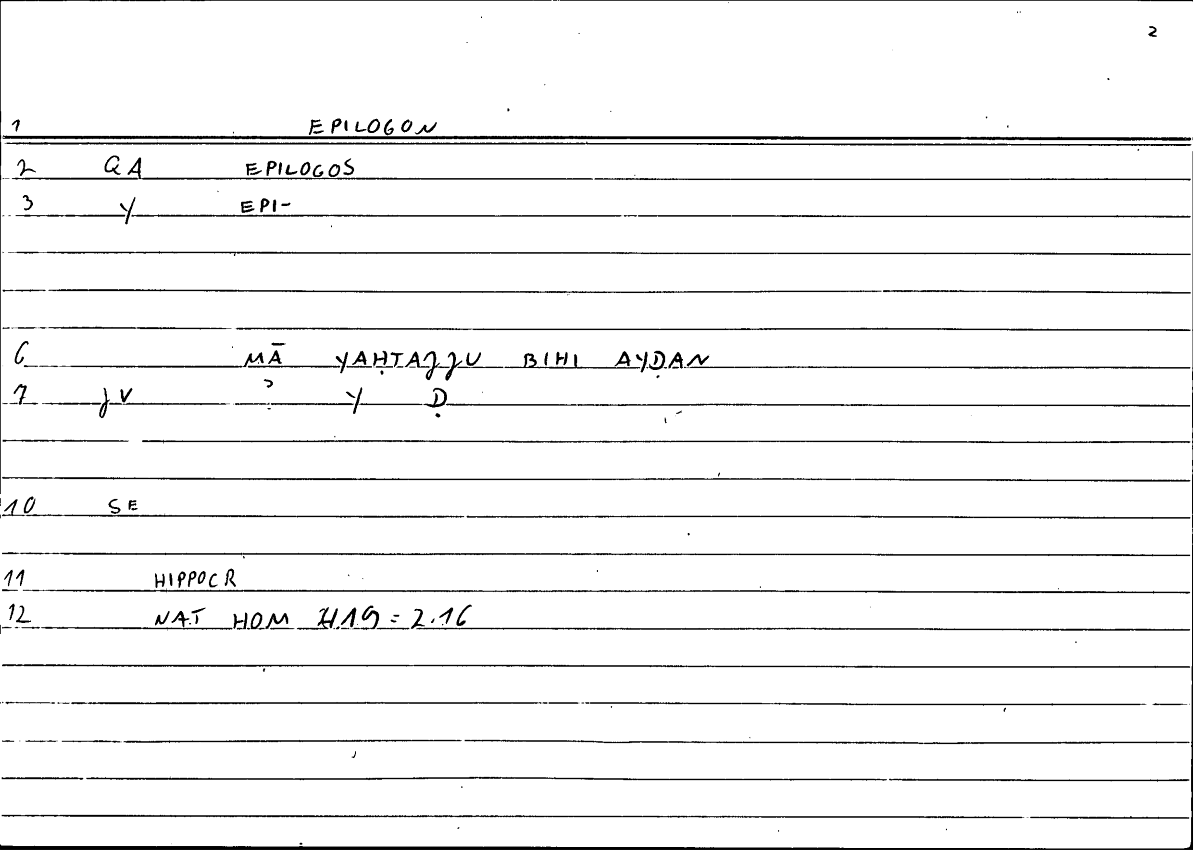 2
1 EPILOGON
2 QA EPILOGOS
3 Y EPI-
6 MĀ YAḤTAJJU BIHI AYḌAN
7 JV ʾ Y Ḍ
10 SE
11 HIPPOCR
12 NAT HOM 19 = 2.16